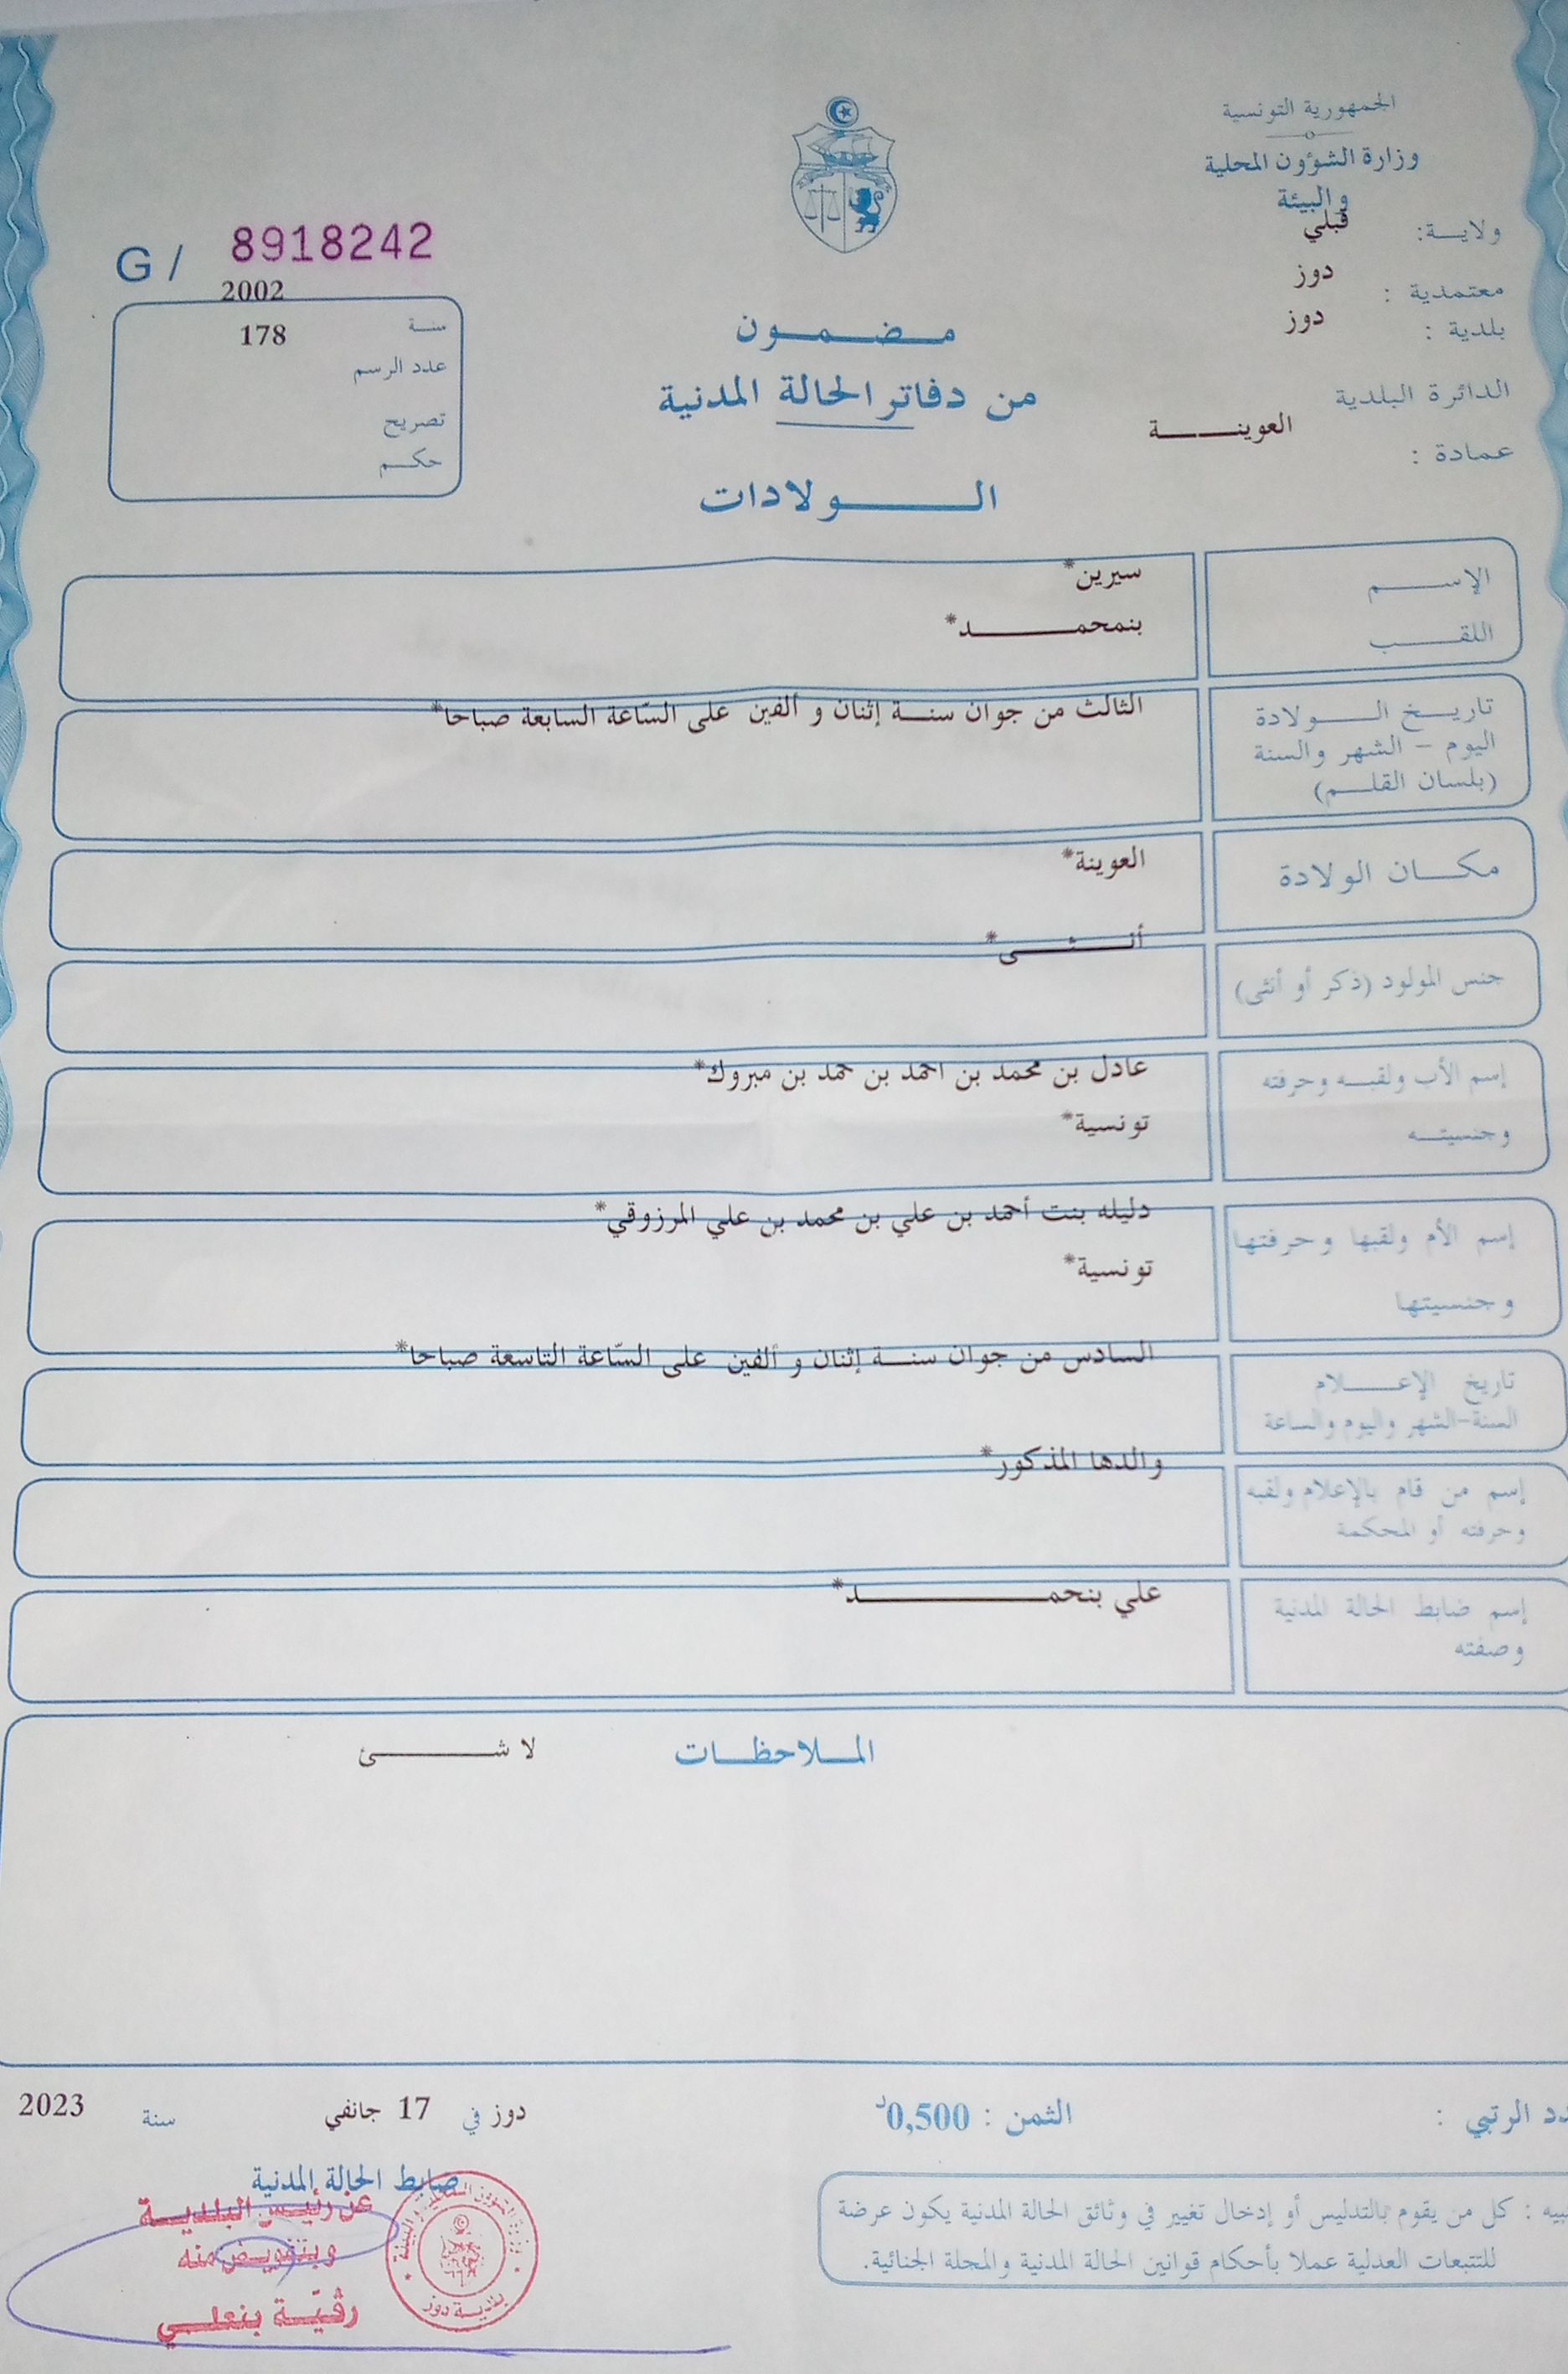 الجمهورية التونسية
وزارة الشؤون المحلية
والبيئة
ولاية: قبلي
معتمدية : دوز
بلدية : دوز
الدائرة البلدية
العوينة
عمادة :
G / 8918242
2002
سنة
178
عدد الرسم
تصريح
حكم
مضمون
من دفاتر الحالة المدنية
الولادات
الإسم سيرين*
اللقب بنمحمد*
تاريخ الولادة الثالث من جوان سنة إثنان و ألفين على السّاعة السابعة صباحا*
اليوم - الشهر والسنة
(بلسان القلم)
مكان الولادة العوينة*
أنثى*
جنس المولود (ذكر أو أنثى)
إسم الأب ولقبه وحرفته عادل بن محمد بن احمد بن حمد بن مبروك*
وجنسيته تونسية*
إسم الأم ولقبها وحرفتها دليله بنت أحمد بن علي بن محمد بن علي المرزوقي*
وجنسيتها تونسية*
تاريخ الإعلام السادس من جوان سنة إثنان و ألفين على السّاعة التاسعة صباحا*
السنة-الشهر واليوم والساعة
والدها المذكور*
إسم من قام بالإعلام ولقبه
وحرفته أو المحكمة
إسم ضابط الحالة المدنية علي بنحمد*
وصفته
الملاحظات لا شئ
الرتبي :
الثمن : 0,500د
دوز في 17 جانفي سنة 2023
ضابط الحالة المدنية
عن رئيس البلدية
وبتفويض منه
رقيّة بنعلي
بلدية دوز
: كل من يقوم بالتدليس أو إدخال تغيير في وثائق الحالة المدنية يكون عرضة
للتتبعات العدلية عملا بأحكام قوانين الحالة المدنية والمجلة الجنائية.